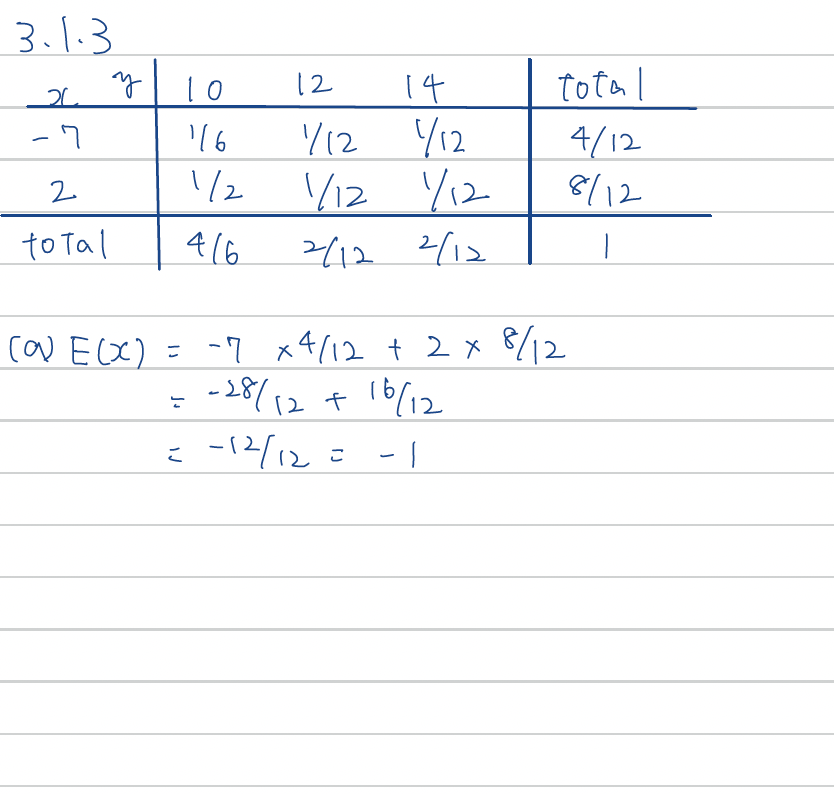 3.1.3
x y 10 12 14 total
-7 1/6 1/12 1/12 4/12
2 1/2 1/12 1/12 8/12
total 4/6 2/12 2/12 1
(a) E(x) = -7 × 4/12 + 2 × 8/12
= -28/12 + 16/12
= -12/12 = -1